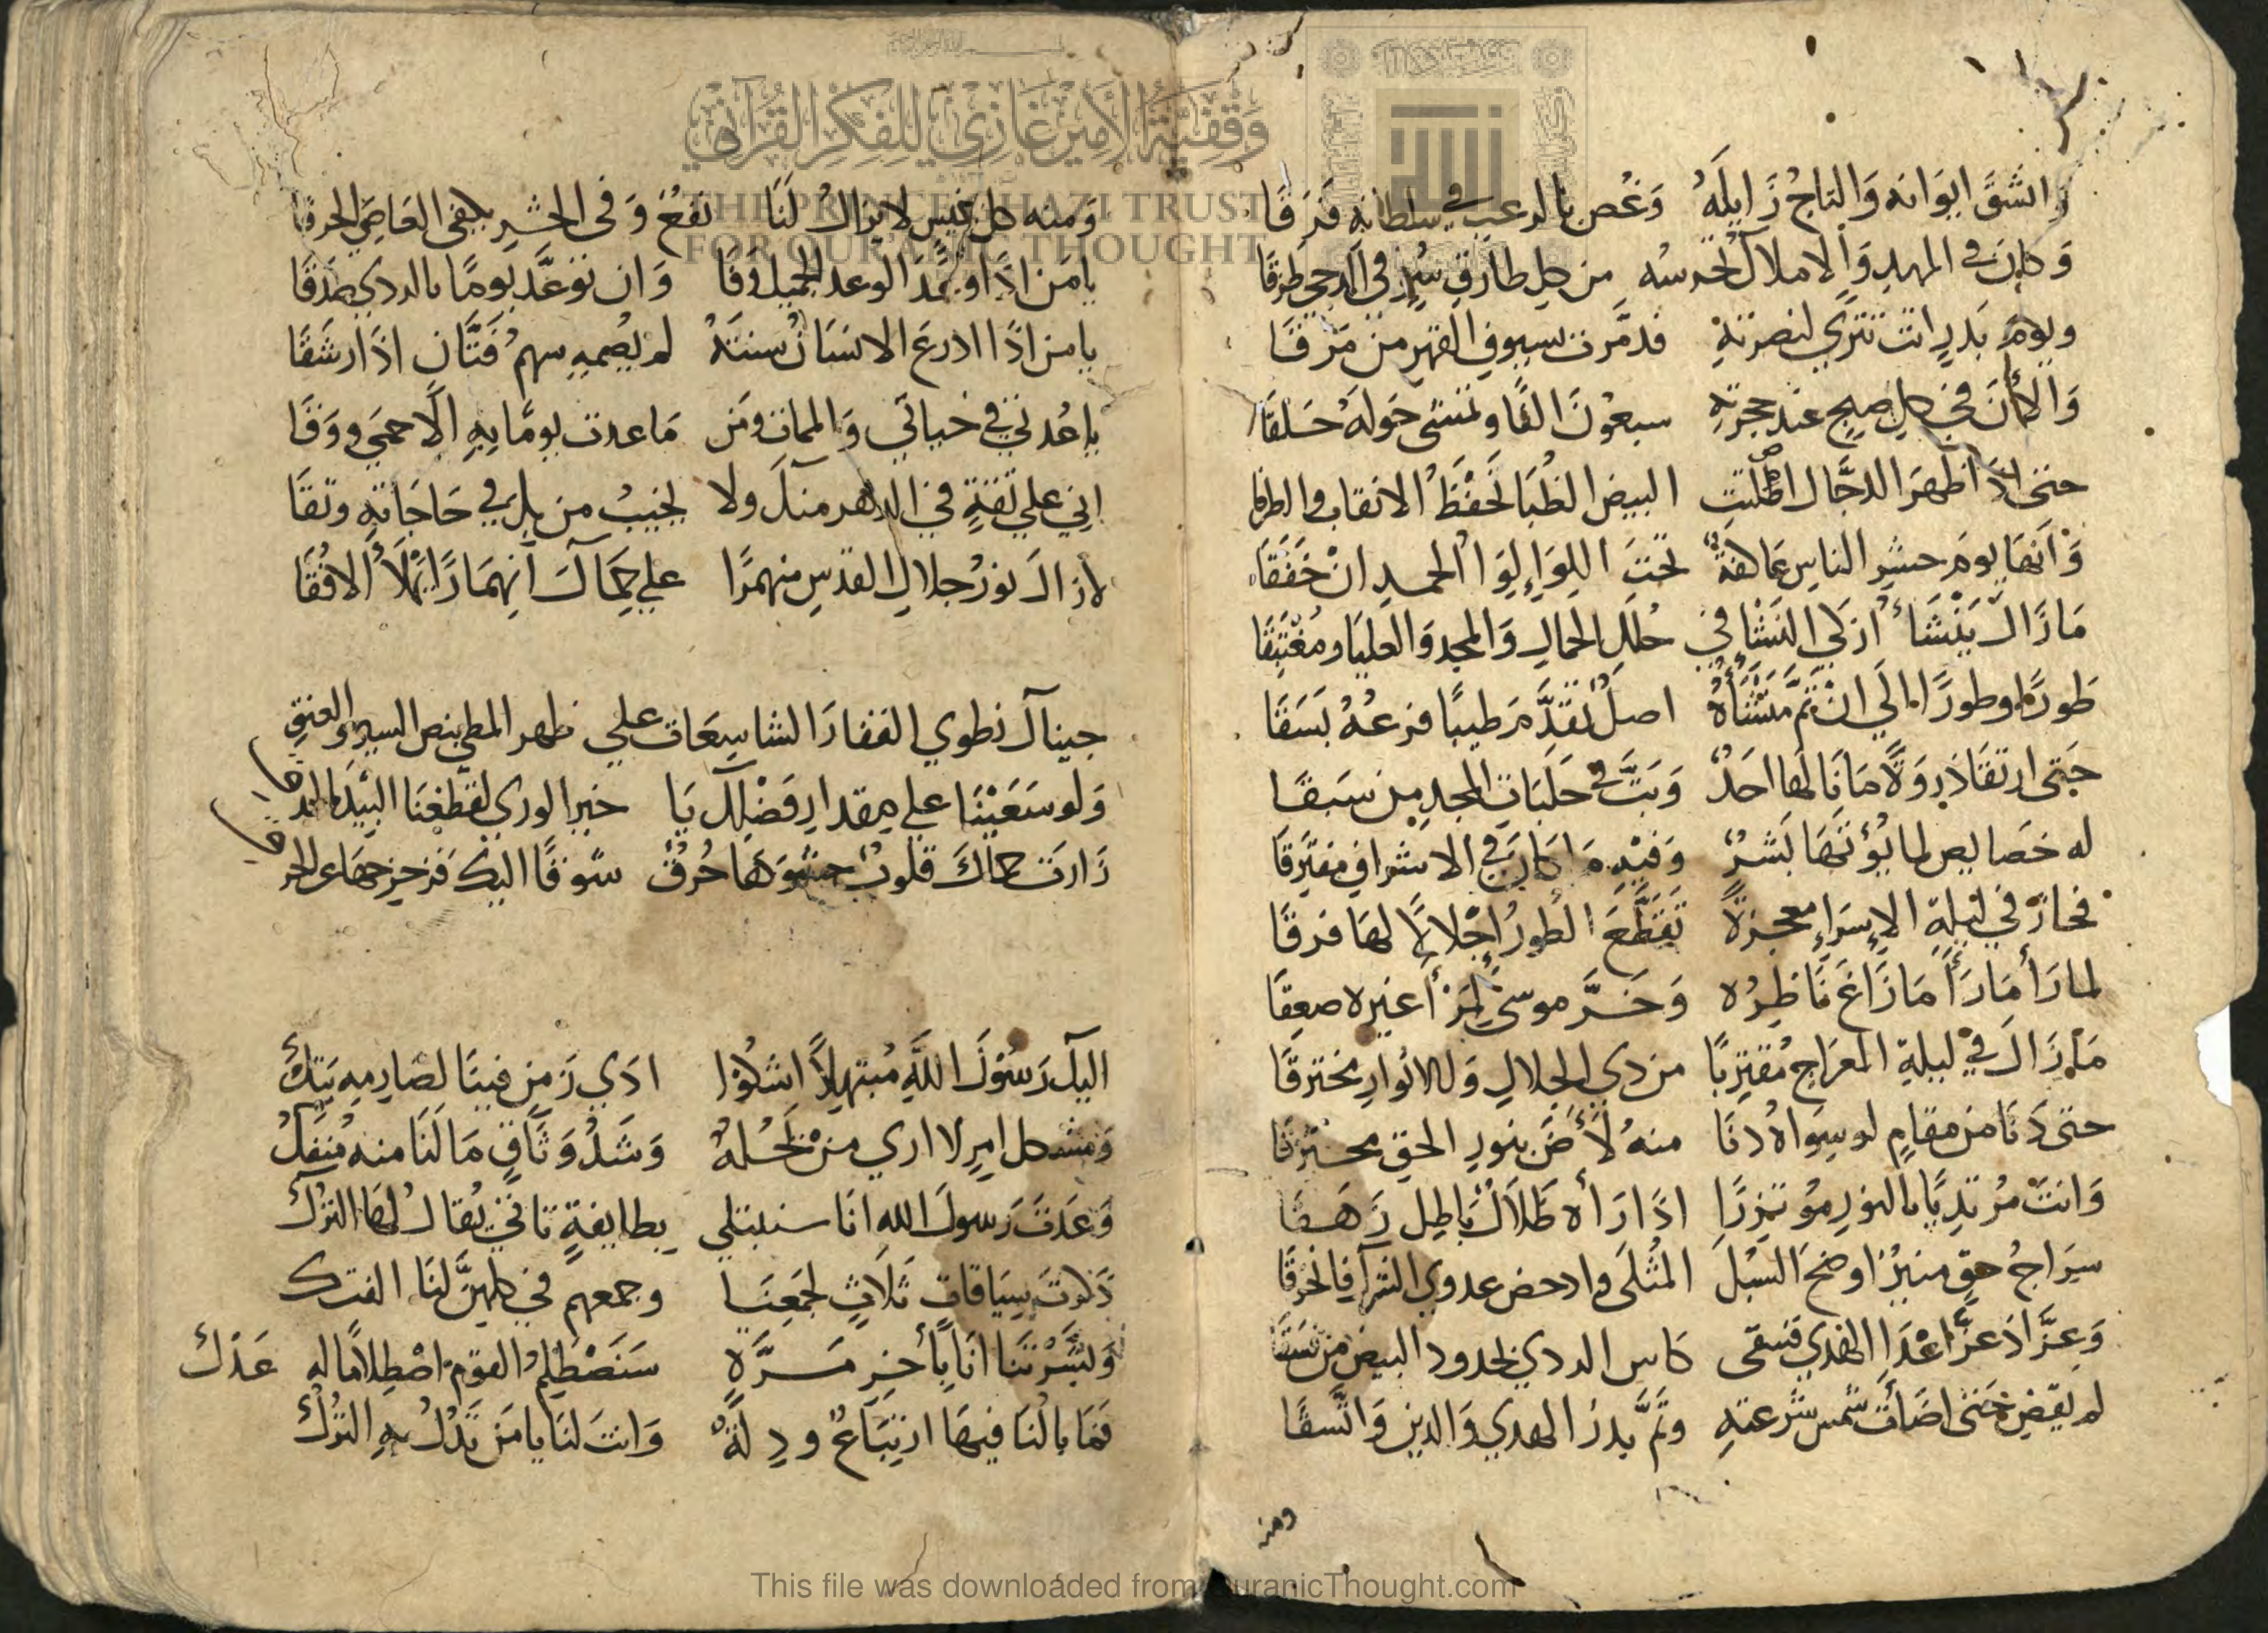 وانشق ايوانه والتاج زايله وغص بالرعب في سلطانه فرقا
وكان في المهد والاملاك تحرسه من كل طارق سوء في الدجى طرقا
ويوم بدر اتت تترى لنصرته فدمرت بسيوف القهر من مرقا
والان في كل صبح عند حجرته سبعون الفا وتمسي حوله حلقا
حتى اذا ظهر الدجال اصلتت البيض الظبا لحفظ الانقاب والطرقا
وانها يوم حشر الناس عاكفة تحت اللواء لوا الحمد ان خفقا
ما زال ينشأ ازكى النشأ في حلل الجمال والمجد والعليا ومغتبقا
طورا وطورا الى ان تم منشأه اصل تقدم طيبا فرعه بسقا
حتى ارتقا ذروة ما نالها احد وبت في حلبات المجد من سبقا
له خصايص لم يؤتها بشر وفيه ما كان في الاشراف مفترقا
فحاز في ليلة الإسراء معجزة تقطع الطور إجلالا لها فرقا
لما رأى ما رأى ما زاغ ناظره وخر موسى لمرأى غيره صعقا
ما زال في ليلة المعراج مقتربا من ذي الجلال وللانوار مخترقا
حتى دنا من مقام لو سواه دنا منه لأض بنور الحق محترقا
وانت مرتديا بالنور مؤتزرا اذا رأه ظلال باطل زهقا
سراج حق منير اوضح السبل المثلى وادحض عدوى الشرك فانخرقا
وعز اذ عز اعداء الهدي فسقى كاس الردي لحدود البيض من فسقا
لم يقض حتى اضأت شمس شرعته وتم بدر الهدي والدين واتسقا
ومنه
ومنه كل نفيس لا يزال لنا نفع وفي الحشر يكفى العاصي الحرقا
يا من اذا وعد الوعد الجميل وفا وان توعد يوما بالردي صدقا
يا من اذا ادرع الانسان سنته لم يصمه سهم فتان اذا رشقا
يا عدتي في حياتي والممات ومن ما عدت يوما به الا حمى ووقا
اني على ثقة في الدهر منك ولا يخيب من بك في حاجاته وثقا
لازال نور جلال القدس منهمرا على حماك انهمارا يملأ الافقا
جيناك نطوي القفار الشاسعات على ظهر المطي بنص السير والعنق
ولو سعينا على مقدار فضلك يا خير الورى لقطعنا البيد بالحدق
زارت حماك قلوب حشوها حرق شوقا اليك فزحزحها عن الحرق
اليك رسول الله مبتهلا اشكوا اذي زمن فينا لصارمه بتك
ومشكل امر لا اري من يحله وشد وثاق ما لنا منه منفك
وعدت رسول الله انا سنبتلي بطايفة تاتي يقال لها الترك
ذكرت سياقات ثلاث لجمعنا وجمعهم في كلهن لنا الفتك
وبشرتنا انا بأخر مرة سنصطلم القوم اصطلاما له عدك
فما بالنا فيها ارتياع وذلة وانت لنا يا من تدك به الترك
وقفية الأمير غازي للفكر القرآني
THE PRINCE GHAZI TRUST
FOR QUR'ANIC THOUGHT
This file was downloaded from QuranicThought.com